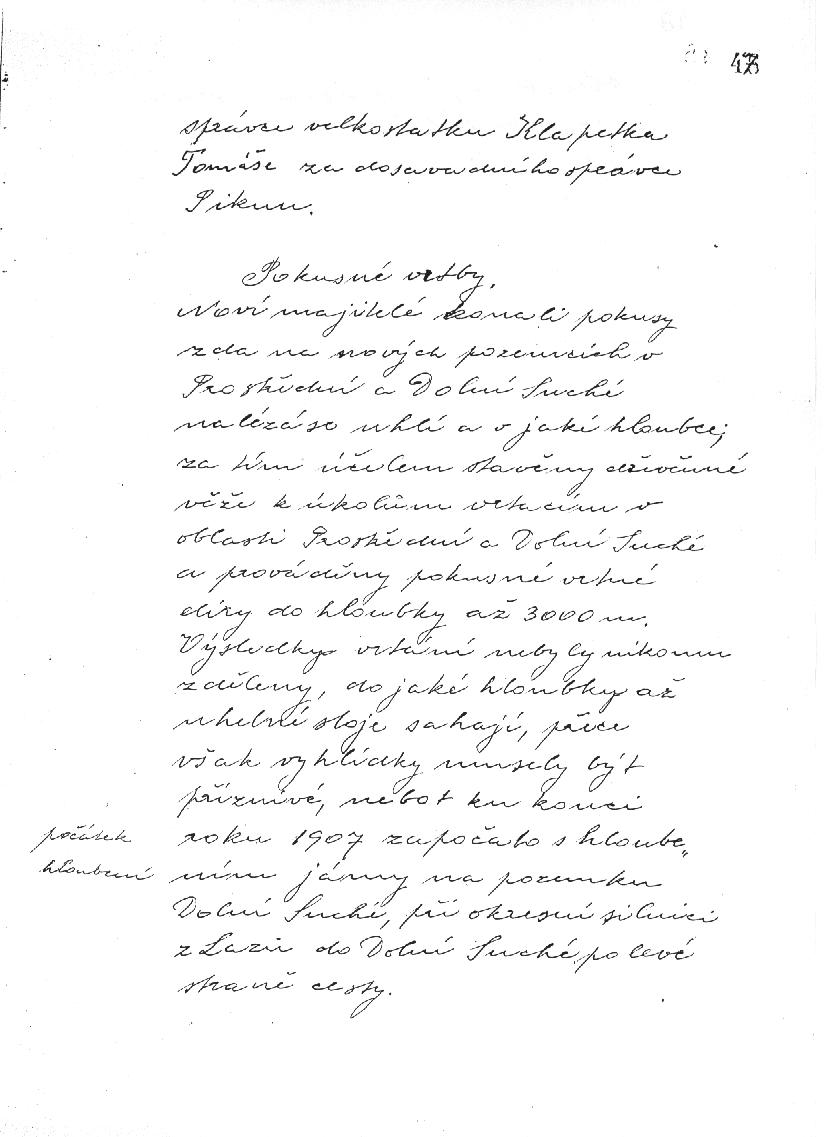 správce velkostatku Klapetka
Tomáše za dosavadního správce
Pikuu.
Pokusné vrtby.
Noví majitelé konali pokusy
zda na nových pozemcích v
Prostřední a Dolní Suché
nalézá se uhlí a v jaké hloubce;
za tím účelem stavěny dřevěnné
věže k úkolům vrtacím v
oblasti Prostřední a Dolní Suché
a prováděny pokusné vrtné
díry do hloubky až 3000 m.
Výsledky vrtání nebyly nikomu
zděleny, do jaké hloubky až
uhelné sloje sahají, přece
však vyhlídky musely být
příznivé, neboť ku konci
roku 1907 započato s hloube„
počátek
hloubení
ním jámy na pozemku
Dolní Suché, při okresní silnici
z Lazů do Dolní Suché po levé
straně cesty.